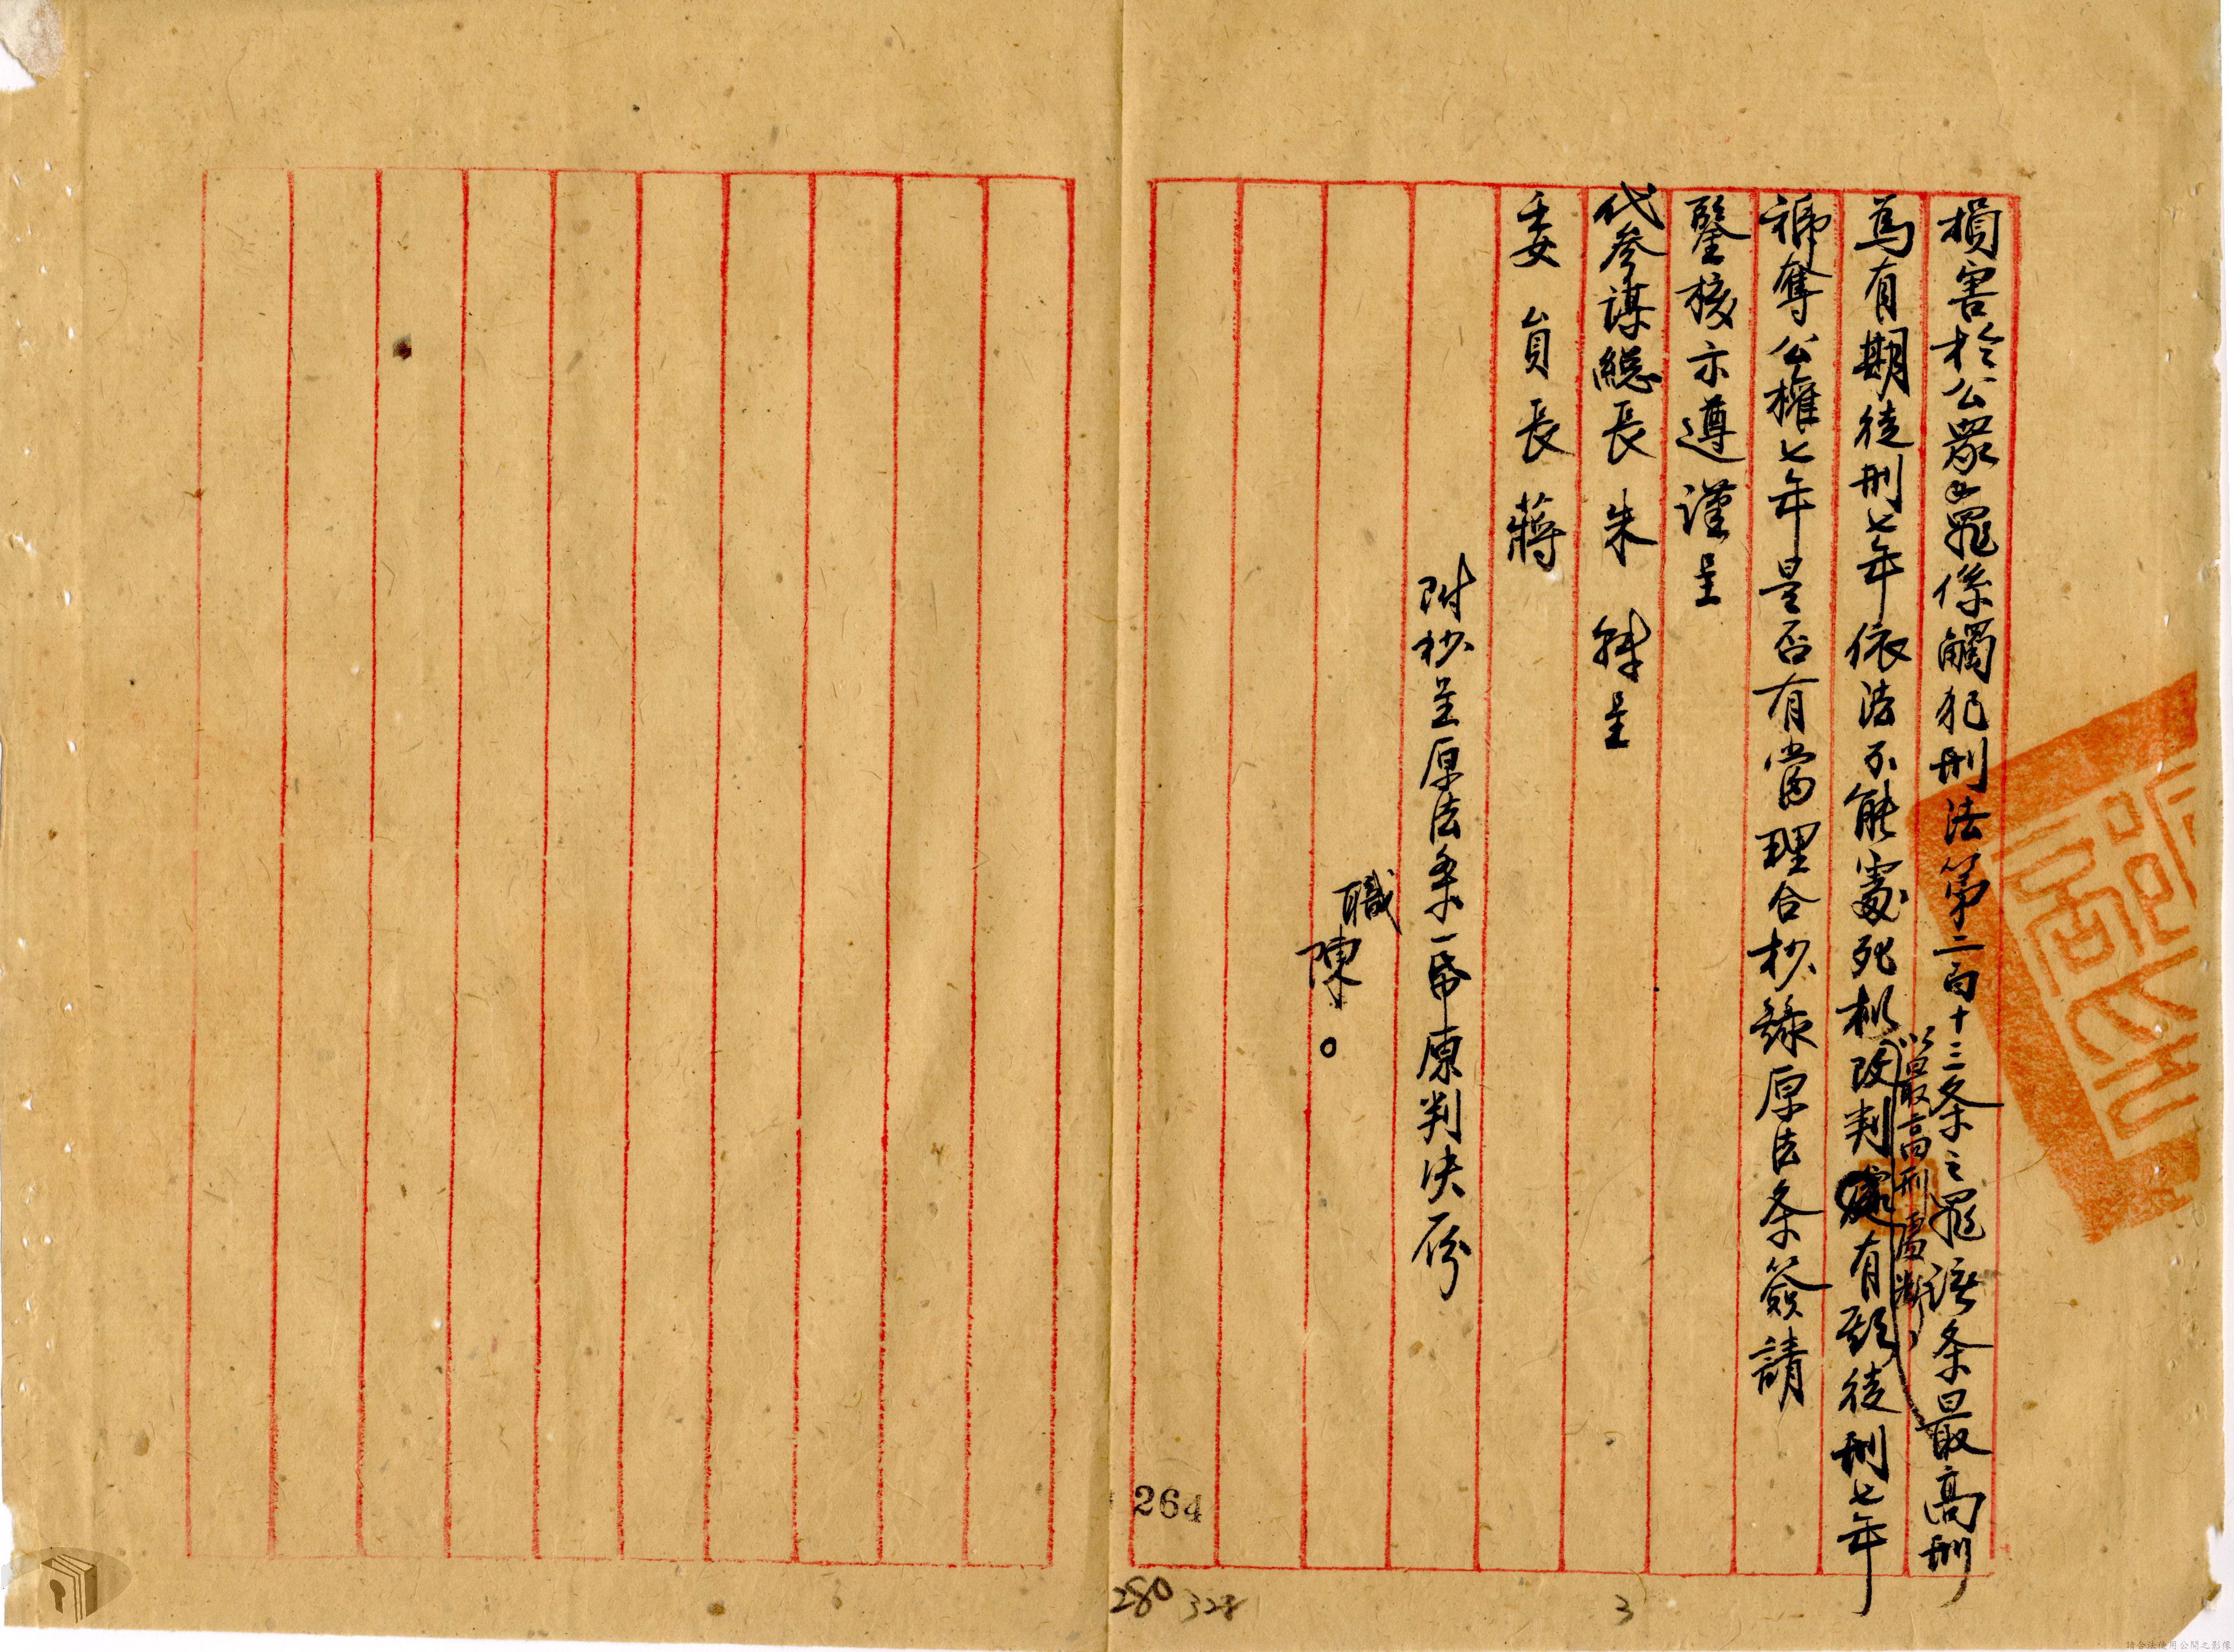 損害於公眾之罪係觸犯刑法第二百十三条之罪該条最高刑
為有期徒刑七年依法不能處死拟改判處有期徒刑七年
以最高刑處断,
褫奪公權七年是否有當理合抄錄原法条簽請
鑒核示遵謹呈
代參謀總長朱 轉呈
委員長蔣
附抄呈原法条一帋原判決一份
職
陳。
264
280 328
3
請合法使用公開之影像